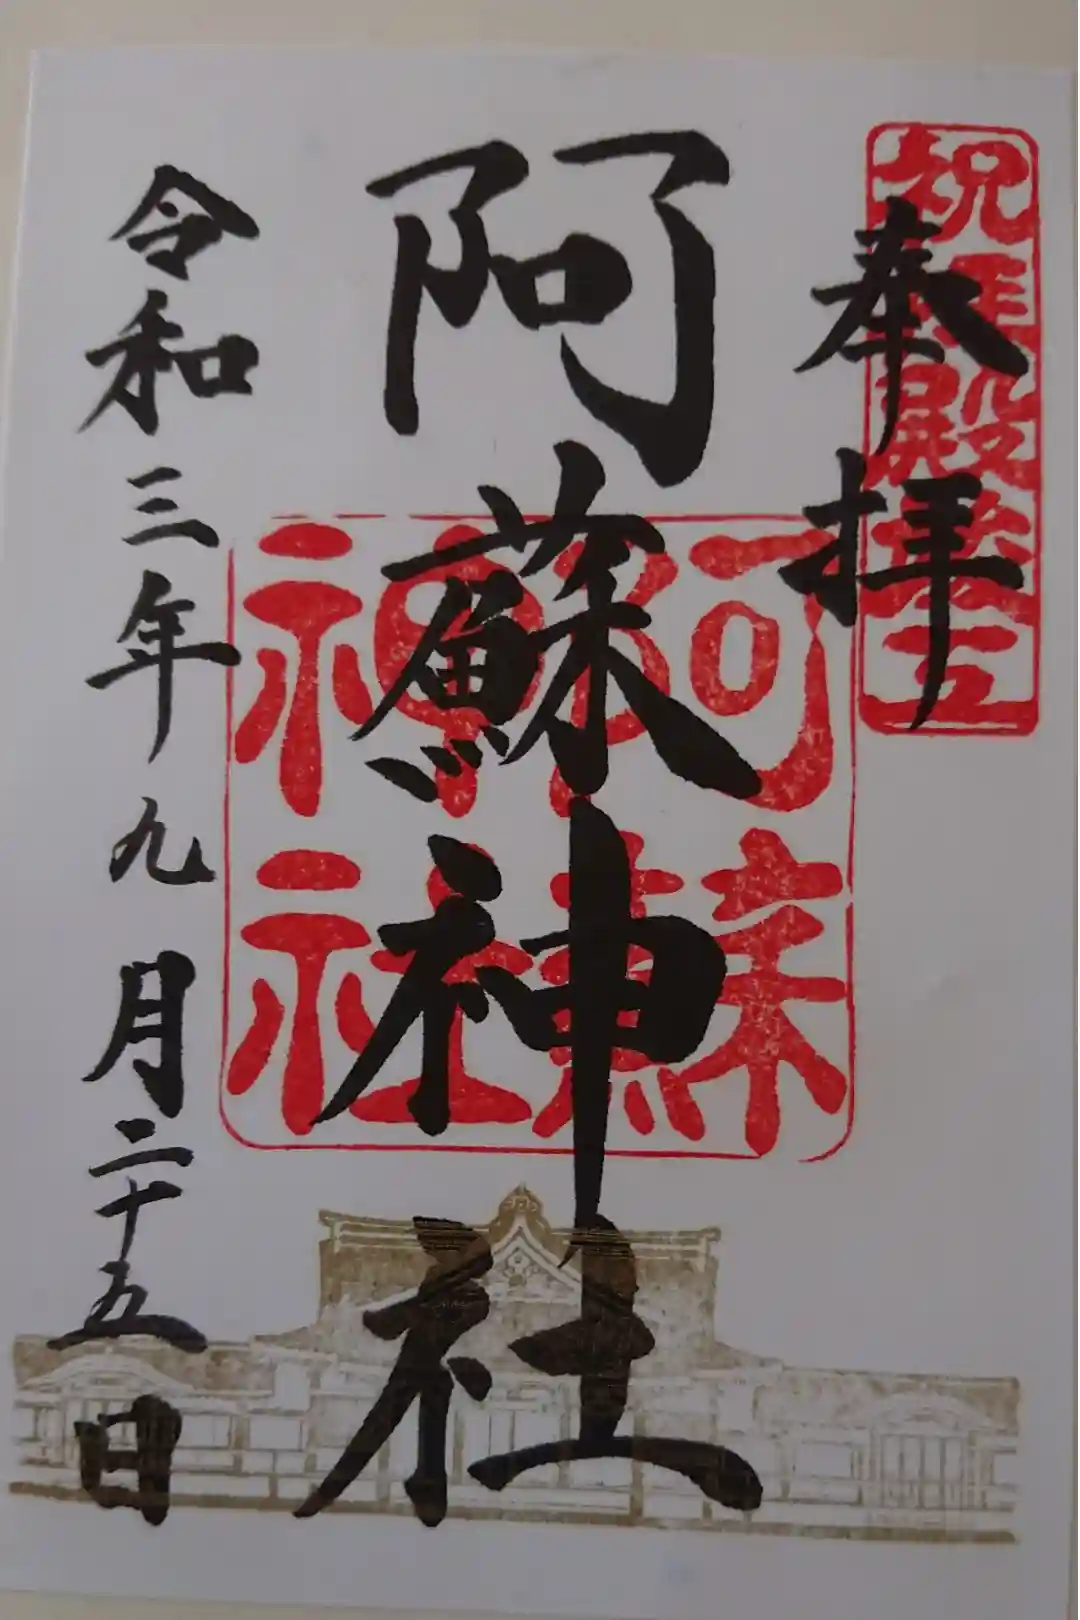 奉拝
祝拝殿竣工
阿蘇神社
阿蘇神社
令和三年九月二十五日